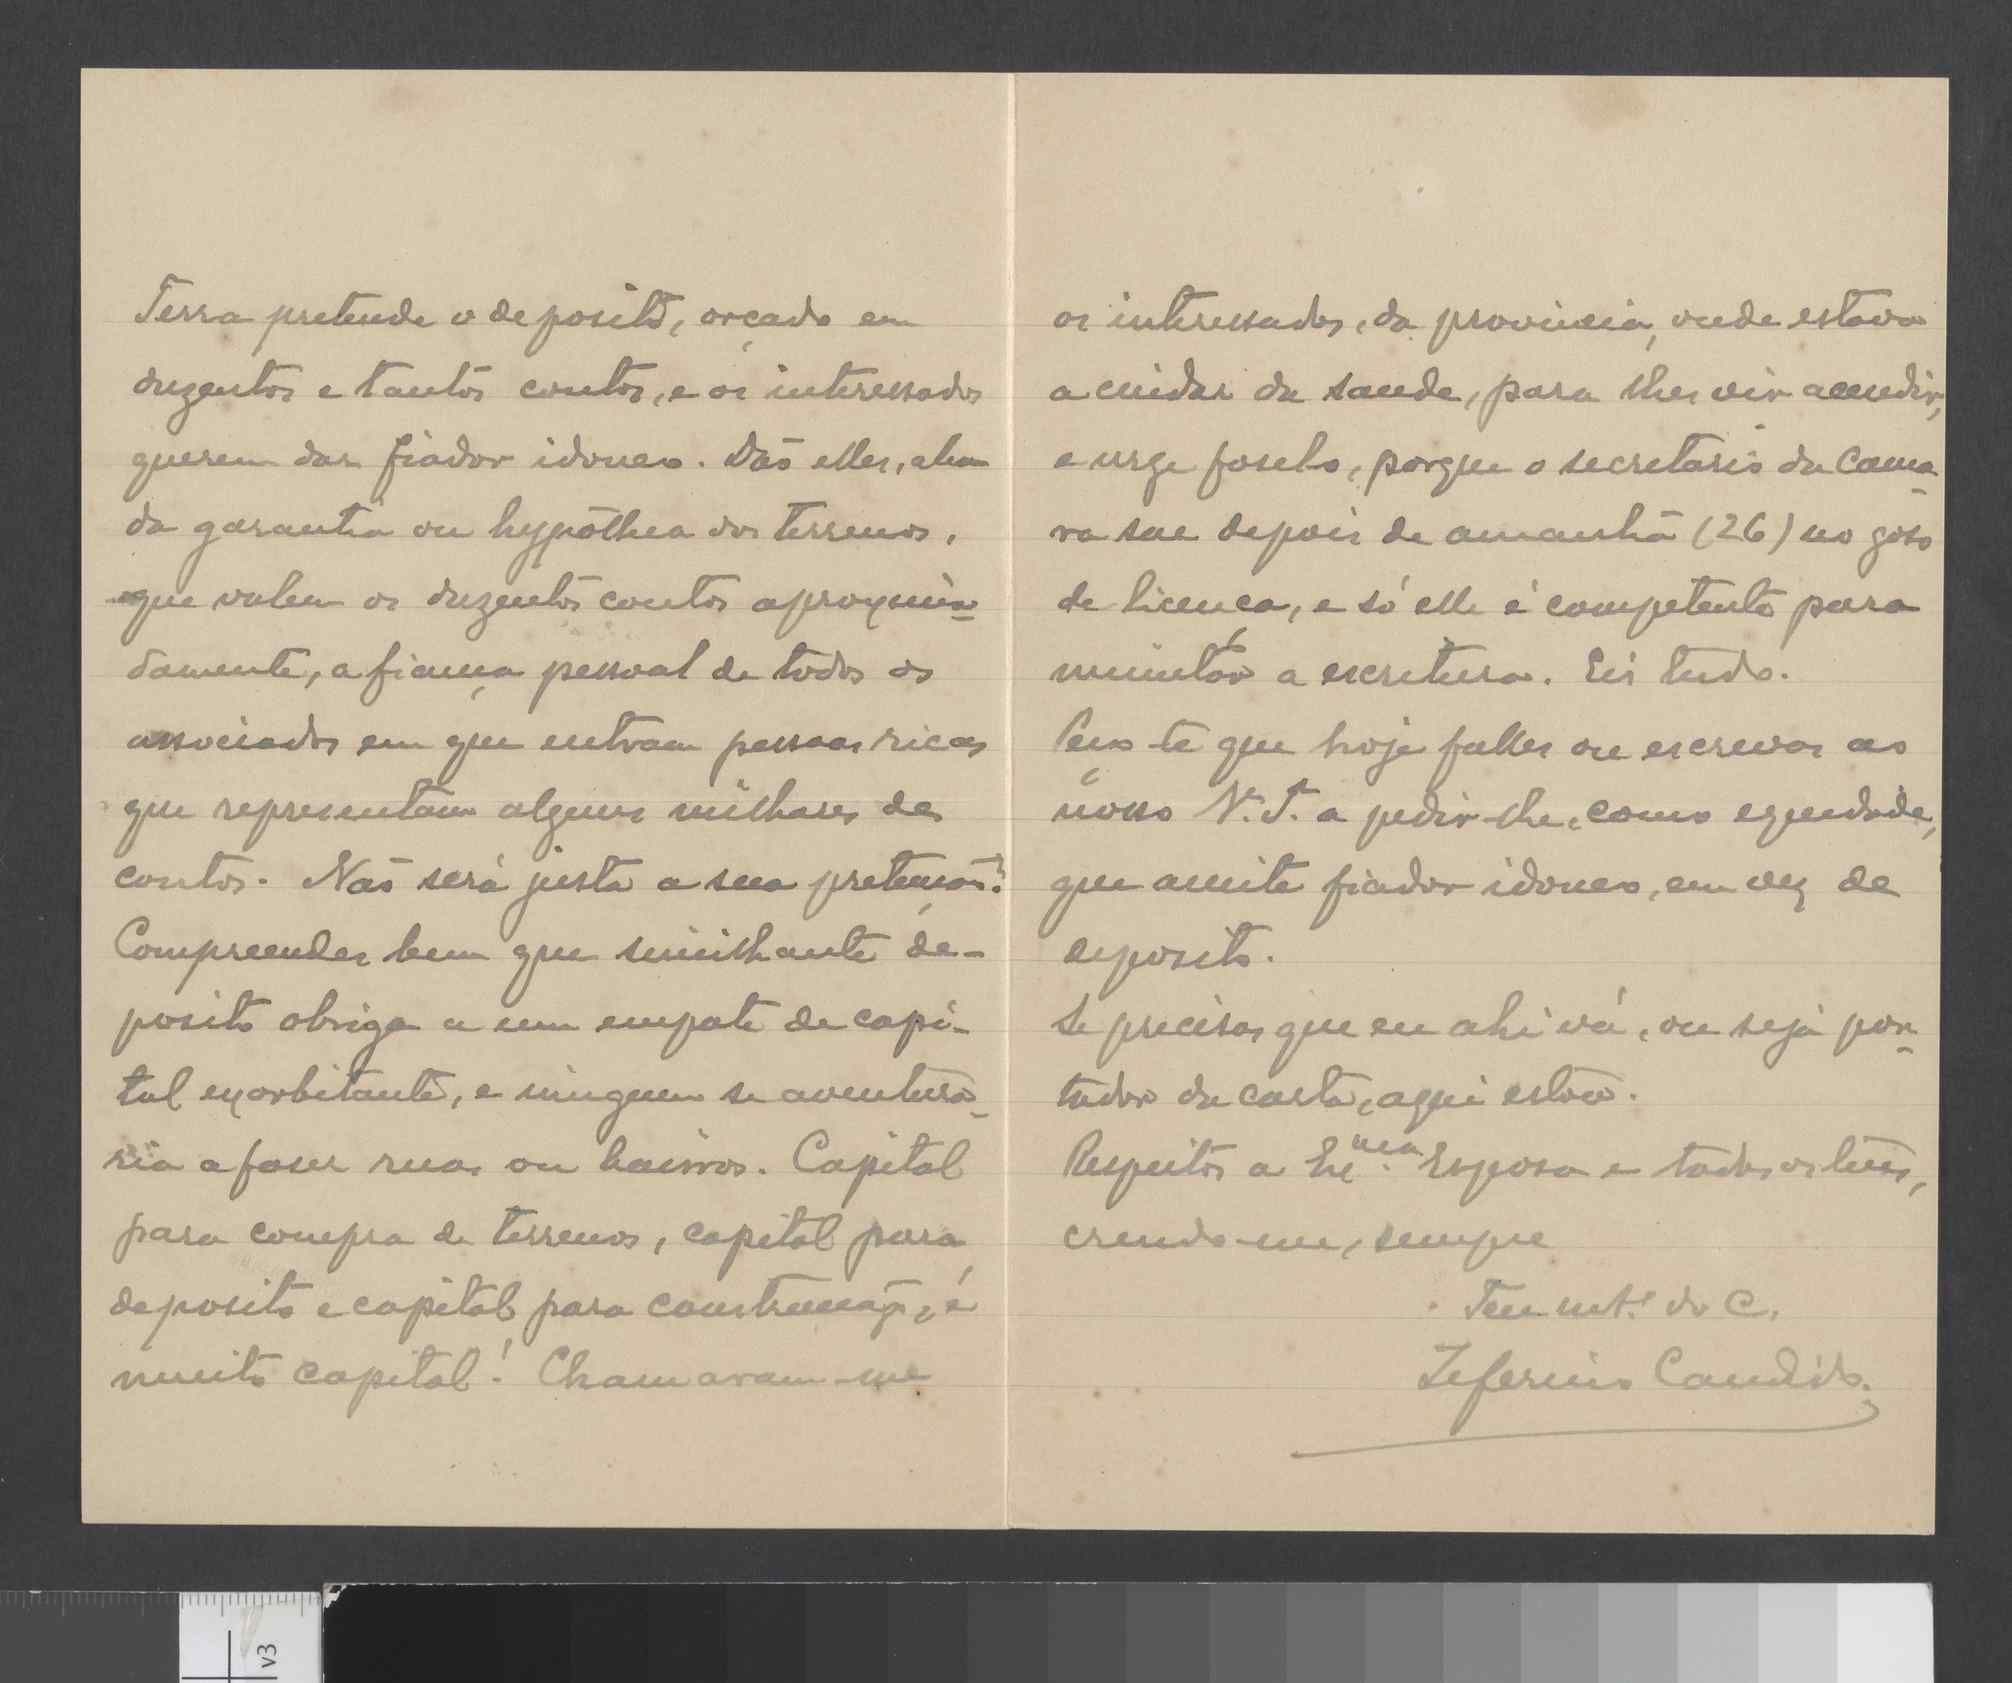 Terra pretende o deposito, orçado em
duzentos e tantos contos, e os interessados
querem dar fiador idoneo. Dão elles, alem
da garantia ou hypothca dos terrenos,
que valem os duzentos contos aproxima-
damente, a fiança pessoal de todos os
associados em que entram pessoas ricas
que representam alguns milhares de
contos. Não será justa a sua pretenção?
Compreendes bem que similhante de-
posito obriga a um empate de capi-
tal exorbitante, e ninguem se aventura-
ria a faser ruas ou bairros. Capital
para compra de terrenos, capital para
deposito e capital para construcção, é
muito capital! Chamaram-me
os interessados, da provincia, onde estava
a cuidar da saude, para lhes vir accudir,
e urge faselo, porque o secretario da Cama-
ra sae depois de amanhã (26) no goso
de licença, e só elle é competente para
minutar a escritura. Eis tudo.
Peço-te que hoje falles ou escrevas ao
nosso N. T. a pedir-lhe, como equidade,
que aceite fiador idoneo, em vez de
deposito.
Se precisas que eu ahi vá, ou seja por-
tador da carta, aqui estou.
Respeitos a Ex.ma Esposa e todos os teus,
crendo-me, sempre
Teu mt.º do C.
Zeferino Candido.
V3